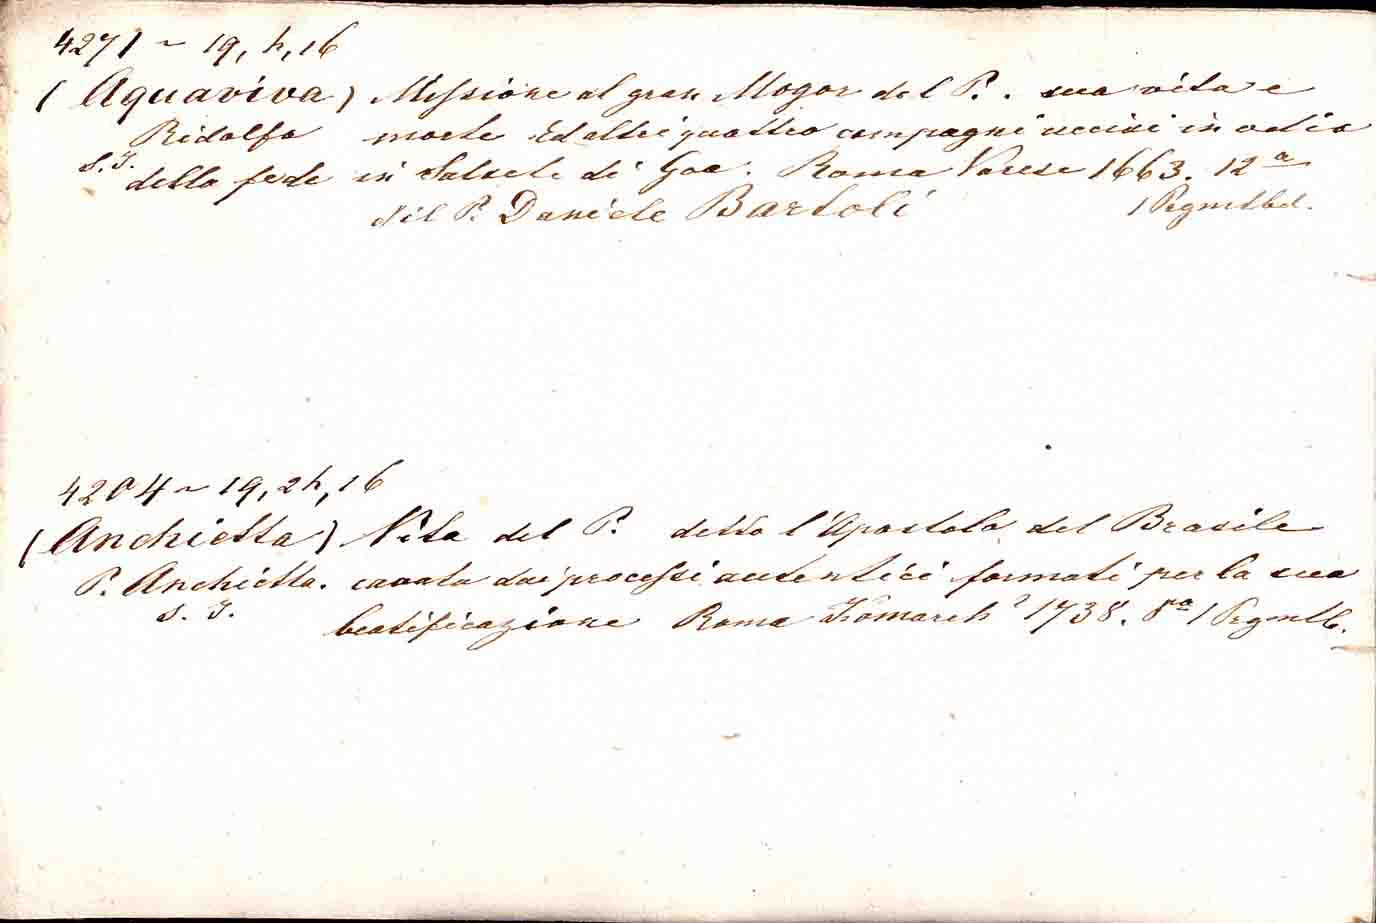 4271 ~ 19, h, 16
(Aquaviva) Missione al gran Mogor del P. . sua vita e
Ridolfo morte ed altri quattro compagni uccisi in odio
S. J. della fede in Salsete di Goa. Roma Varese 1663. 12a
del P. Daniele Bartoli 1 Prgmtbd.
4204 ~ 19, 2h, 16
(Anchietta) Vita del P. detto l'Apostolo del Brasile
P. Anchietta. cavata dai processi autentici formati per la sua
S. J. beatificazione Roma Komarek 1738. 8a 1 Prgmtb.